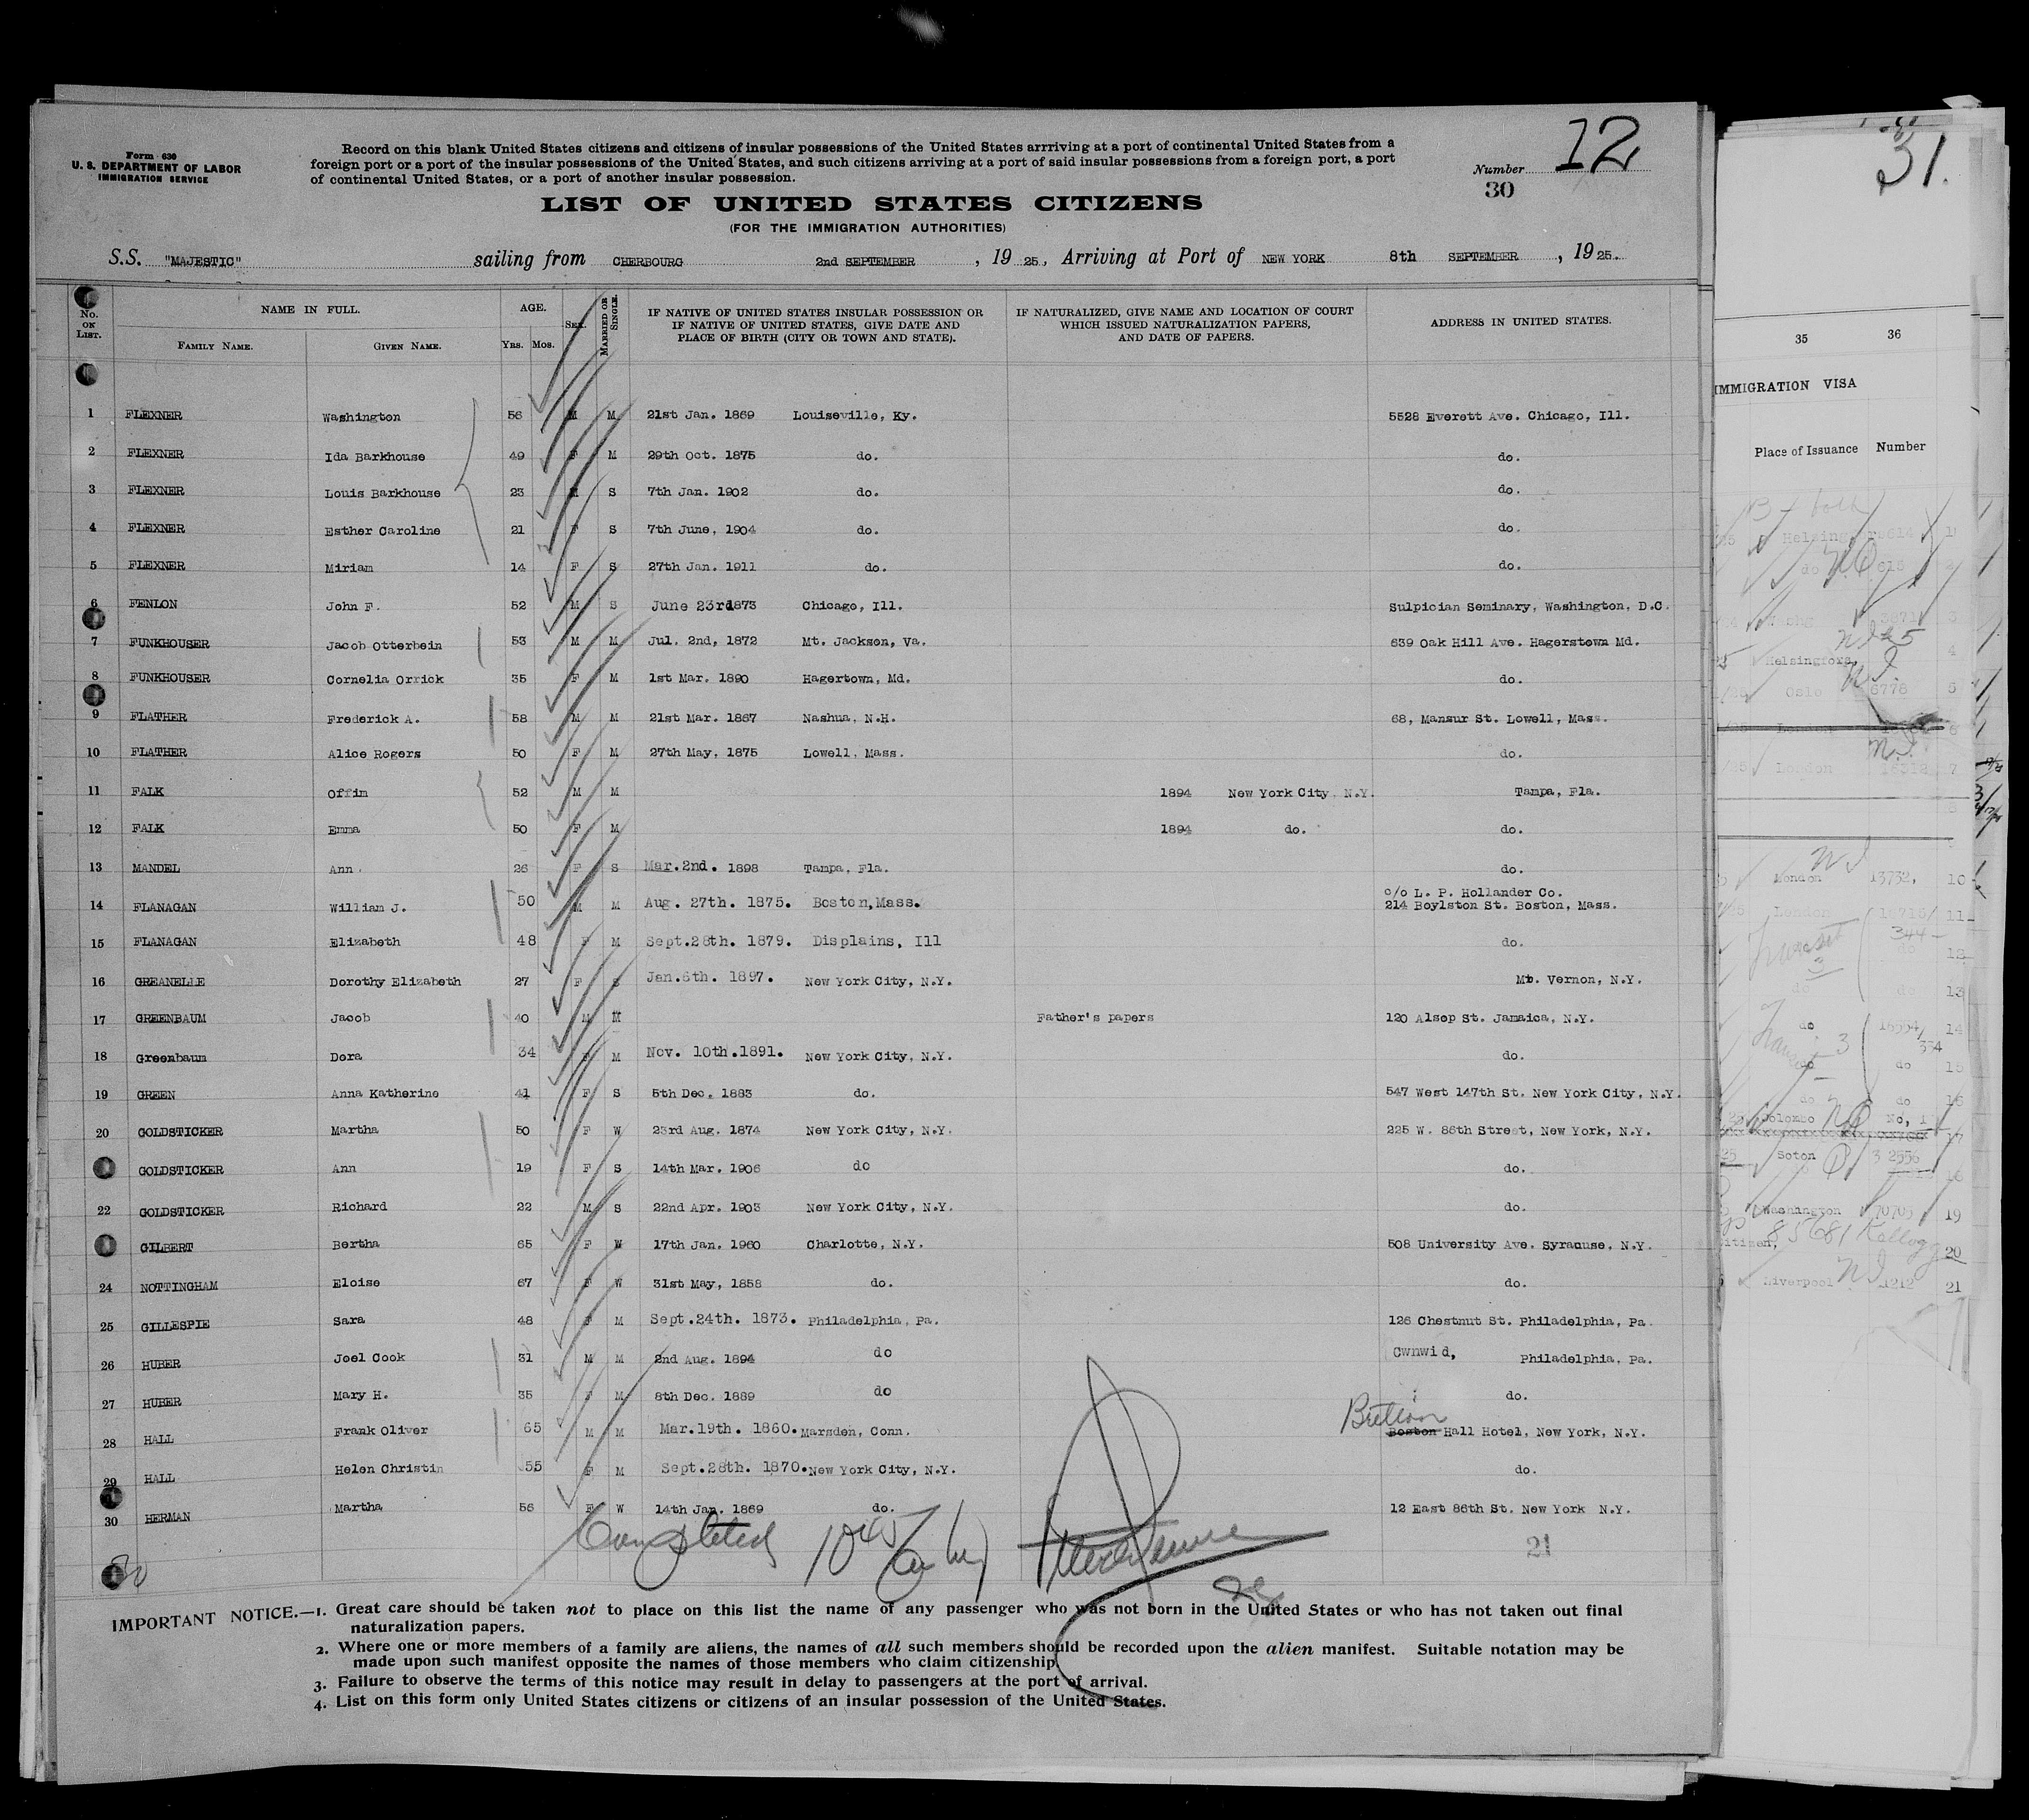 Form 630
U. S. DEPARTMENT OF LABOR
IMMIGRATION SERVICE
Record on this blank United States citizens and citizens of insular possessions of the United States arrriving at a port of continental United States from a
foreign port or a port of the insular possessions of the United States, and such citizens arriving at a port of said insular possessions from a foreign port, a port
of continental United States, or a port of another insular possession.
Number 12
30
LIST OF UNITED STATES CITIZENS
(FOR THE IMMIGRATION AUTHORITIES)
S.S. "MAJESTIC" sailing from CHERBOURG 2nd SEPTEMBER, 1925, Arriving at Port of NEW YORK 8th SEPTEMBER, 1925.
No. ON LIST. NAME IN FULL. FAMILY NAME. GIVEN NAME. AGE. Yrs. Mos. SEX. MARRIED OR SINGLE. IF NATIVE OF UNITED STATES INSULAR POSSESSION OR IF NATIVE OF UNITED STATES, GIVE DATE AND PLACE OF BIRTH (CITY OR TOWN AND STATE). IF NATURALIZED, GIVE NAME AND LOCATION OF COURT WHICH ISSUED NATURALIZATION PAPERS, AND DATE OF PAPERS. ADDRESS IN UNITED STATES.
1 FLEXNER Washington 56 M M 21st Jan. 1869 Louiseville, Ky. 5528 Everett Ave. Chicago, Ill.
2 FLEXNER Ida Barkhouse 49 F M 29th Oct. 1875 do. do.
3 FLEXNER Louis Barkhouse 23 M S 7th Jan. 1902 do. do.
4 FLEXNER Esther Caroline 21 F S 7th June, 1904 do. do.
5 FLEXNER Miriam 14 F S 27th Jan. 1911 do. do.
6 FENLON John F. 52 M S June 23rd1873 Chicago, Ill. Sulpician Seminary, Washington, D.C.
7 FUNKHOUSER Jacob Otterbein 53 M M Jul. 2nd, 1872 Mt. Jackson, Va. 639 Oak Hill Ave. Hagerstown Md.
8 FUNKHOUSER Cornelia Orrick 35 F M 1st Mar. 1890 Hagertown, Md. do.
9 FLATHER Frederick A. 58 M M 21st Mar. 1867 Nashua, N.H. 68, Mansur St. Lowell, Mass.
10 FLATHER Alice Rogers 50 F M 27th May, 1875 Lowell, Mass. do.
11 FALK Offin 52 M M 1894 New York City N.Y. Tampa, Fla.
12 FALK Emma 50 F M 1894 do. do.
13 MANDEL Ann 26 F S Mar.2nd. 1898 Tampa, Fla. do.
14 FLANAGAN William J. 50 M M Aug. 27th. 1875. Boston,Mass. c/o L. P. Hollander Co.
214 Boylston St. Boston, Mass.
15 FLANAGAN Elizabeth 48 F M Sept.28th. 1879. Displains, Ill do.
16 GREANELLE Dorothy Elizabeth 27 F S Jan.6th. 1897. New York City, N.Y. Mt. Vernon, N.Y.
17 GREENBAUM Jacob 40 M M Father's papers 120 Alsop St. Jamaica, N.Y.
18 Greenbaum Dora 34 F M Nov. 10th.1891. New York City, N.Y. do.
19 GREEN Anna Katherine 41 F S 5th Dec. 1883 do. 547 West 147th St. New York City, N.Y.
20 GOLDSTICKER Martha 50 F W 23rd Aug. 1874 New York City, N.Y. 225 W. 86th Street, New York, N.Y.
GOLDSTICKER Ann 19 F S 14th Mar. 1906 do do.
22 GOLDSTICKER Richard 22 M S 22nd Apr. 1903 New York City, N.Y. do.
GILBERT Bertha 65 F W 17th Jan. 1960 Charlotte, N.Y. 508 University Ave. Syracuse, N.Y.
24 NOTTINGHAM Eloise 67 F W 31st May, 1858 do. do.
25 GILLESPIE Sara 48 F M Sept.24th. 1873. Philadelphia, Pa. 126 Chestnut St. Philadelphia, Pa.
26 HUBER Joel Cook 31 M M 2nd Aug. 1894 do Cwnwid, Philadelphia, Pa.
27 HUBER Mary H. 35 F M 8th Dec. 1889 do do.
28 HALL Frank Oliver 65 M M Mar.19th. 1860. Marsden, Conn. Boston Hall Hotel, New York, N.Y.
29 HALL Helen Christin 55 F M Sept.28th. 1870. New York City, N.Y. do.
30 HERMAN Martha 56 F W 14th Jan. 1869 do. 12 East 86th St. New York N.Y.
Completed 1045
21
30
IMPORTANT NOTICE.—1. Great care should be taken not to place on this list the name of any passenger who was not born in the United States or who has not taken out final
naturalization papers.
2. Where one or more members of a family are aliens, the names of all such members should be recorded upon the alien manifest. Suitable notation may be
made upon such manifest opposite the names of those members who claim citizenship
3. Failure to observe the terms of this notice may result in delay to passengers at the port of arrival.
4. List on this form only United States citizens or citizens of an insular possession of the United States.
31.
35 36
IMMIGRATION VISA
Place of Issuance Number
Helsingfors
4
Oslo 6778 5
London 6
London 7
London 13732, 10
London 11
12
do do 13
do 14
334
do do 15
do do 16
Colombo No, 17
Soton
Washington 70705 19
85681 Kellogg 20
Liverpool 1212 21